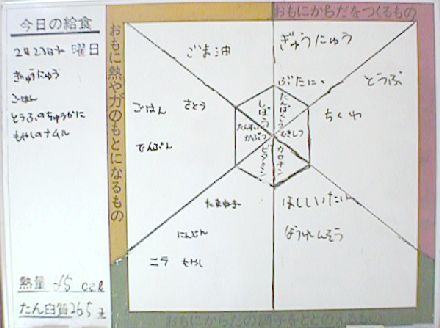 今日の給食
2月23日 曜日
ぎゅうにゅう
ごはん
とうふのちゅうかに
もやしのナムル
熱量
たん白質26.5g
おもに熱や力のもとになるもの
おもにからだをつくるもの
ごま油
ぎゅうにゅう
ぶたにく
とうふ
ちくわ
ごはん
さとう
でんぷん
しぼう
たんぱくしつ
むきしつ
カロチン
たまねぎ
にんじん
ニラ
もやし
ほししいたけ
ほうれんそう
おもにからだの調子をととのえるもの